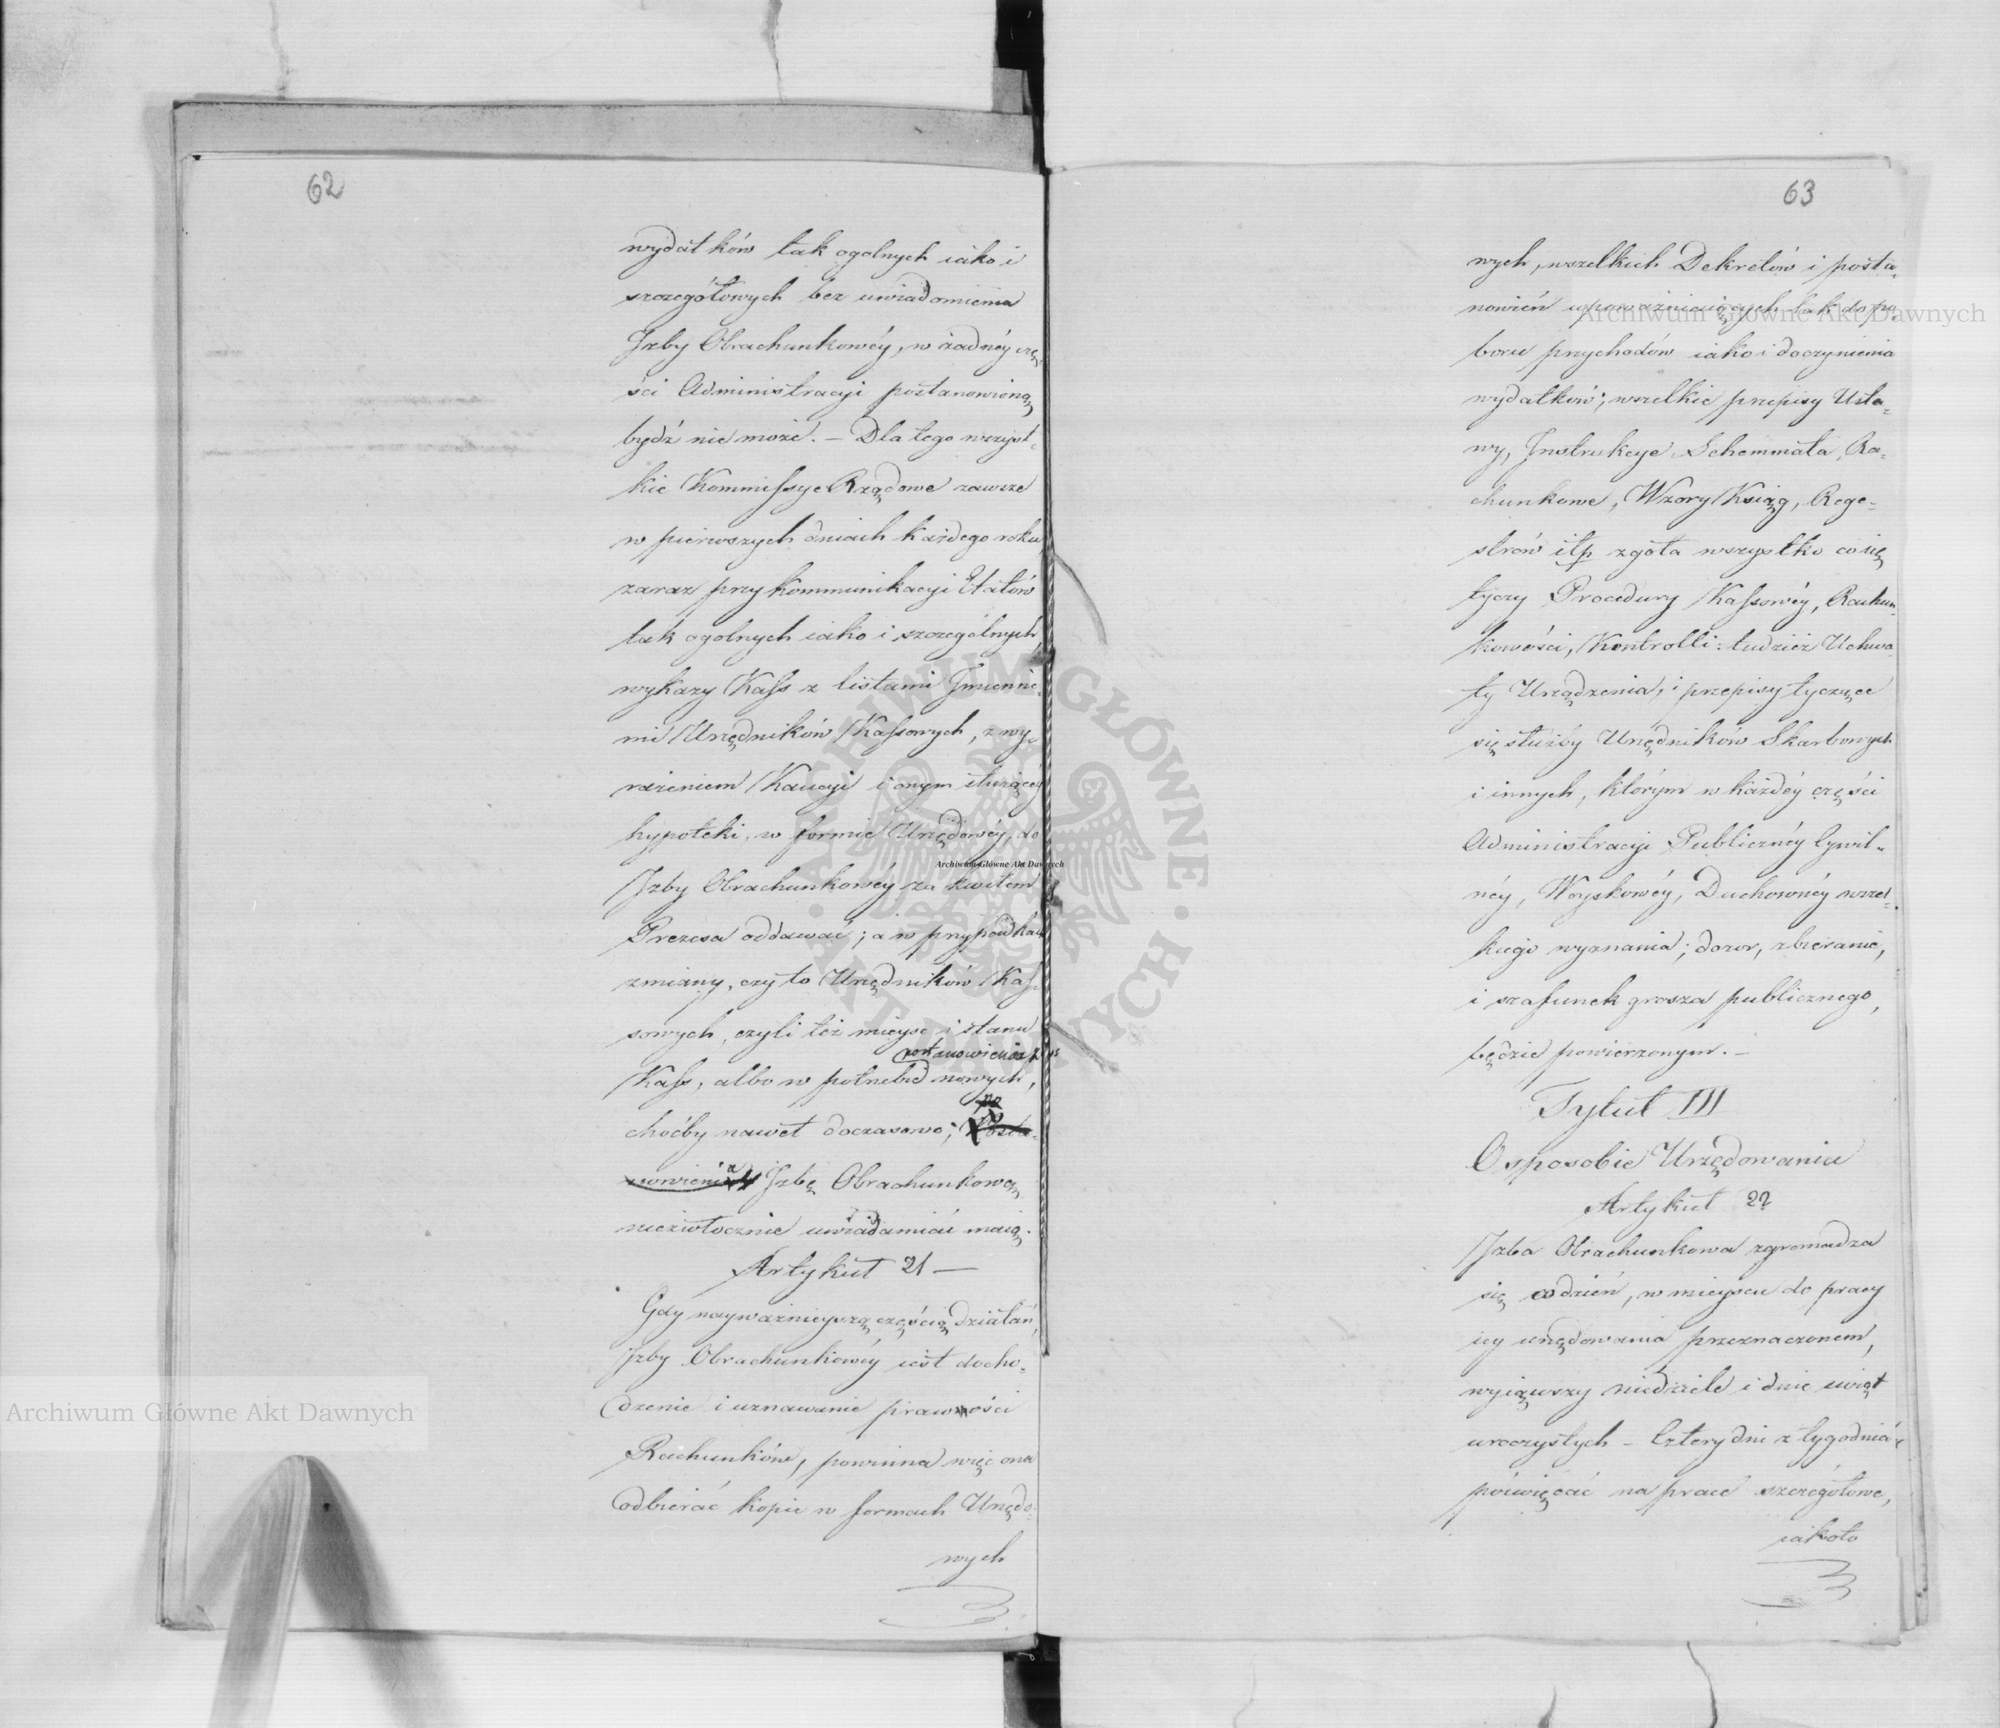 62
wydatków tak ogolnych iako i
szczegółowych bez uwiadomienia
Izby Obrachunkowéy, w żadnéy czę-
ści Administracyi postanowioną
bydź nie może. – Dla tego wszyst-
kie Kommissye Rządowe zawsze
w pierwszych dniach każdego roku
zaraz przy kommunikacyi Etatów
tak ogolnych iako i szczególnych,
wykazy Kass z listami Imienne-
mi Urzędników Kassowych, z wy-
rażeniem Kaucyi i onym służącéy
hypoteki, w formie Urzędowéy, do
Izby Obrachunkowéy za kwitem
Prezesa oddawać; a w przypadkach
zmiany, czy to Urzędników Kas-
sowych, czyli też mieysc i stanu
postanowienia
Kass, albo w potrzebie nowych,
choćby nawet doczasowo;
Izbę Obrachunkową
niezwłocznie uwiadamiać maią.
Artykuł 21 –
Gdy nayważnieyszą częścią działań,
Izby Obrachunkowéy iest docho-
dzenie i uznawanie prawności
Rachunków, powinna więc ona
odbierać kopie w formach Urzędo-
wych
63
wych, wszelkich Dekretów i posta-
nowień upoważniaiących tak do po-
boru przychodów iako i do czynienia
wydatków; wszelkie przepisy Usta-
wy, Instrukcye Schemmata, Ra-
chunkowe, Wzory Ksiąg, Rege-
strów itp zgoła wszystko co się
tyczy Procedury Kassowéy, Rachun-
kowości, Kontrolli: tudzież Uchwa-
ły Urządzenia, i przepisy tyczące
się służby Urzędników Skarbowych
i innych, którym w każdéy części
Administracyi Publicznéy Cywil-
néy, Woyskowéy, Duchownéy wszel-
kiego wyznania; dozor, zbieranie,
i szafunek grosza publicznego,
będzie powierzonym. –
Tytuł III
O sposobie Urzędowania
Artykuł 22
Izba Obrachunkowa zgromadza
się codzień, w mieyscu do pracy
iey urzędowania przeznaczonem,
wyiąwszy niedziele i dnie świąt
uroczystych – Cztery dni z tygodnia
poświęcać na prace szczegółowe,
iakoto
Archiwum Główne Akt Dawnych
Archiwum Główne Akt Dawnych
Archiwum Główne Akt Dawnych
ARCHIWUM GŁÓWNE · AKT DAWNYCH ·